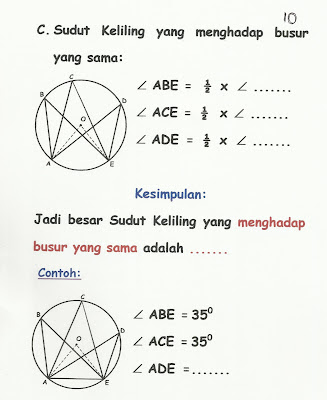 10
C. Sudut Keliling yang menghadap busur
yang sama:
C
B
D
O
A
E
∠ ABE = ½ x ∠ .......
∠ ACE = ½ x ∠ .......
∠ ADE = ½ x ∠ .......
Kesimpulan:
Jadi besar Sudut Keliling yang menghadap
busur yang sama adalah .......
Contoh:
C
B
D
O
A
E
∠ ABE = 35⁰
∠ ACE = 35⁰
∠ ADE =.......